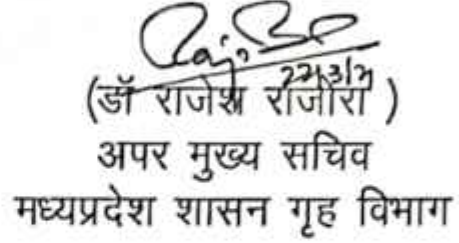 22/3/21
(डॉ राजेश राजौरा )
अपर मुख्य सचिव
मध्यप्रदेश शासन गृह विभाग